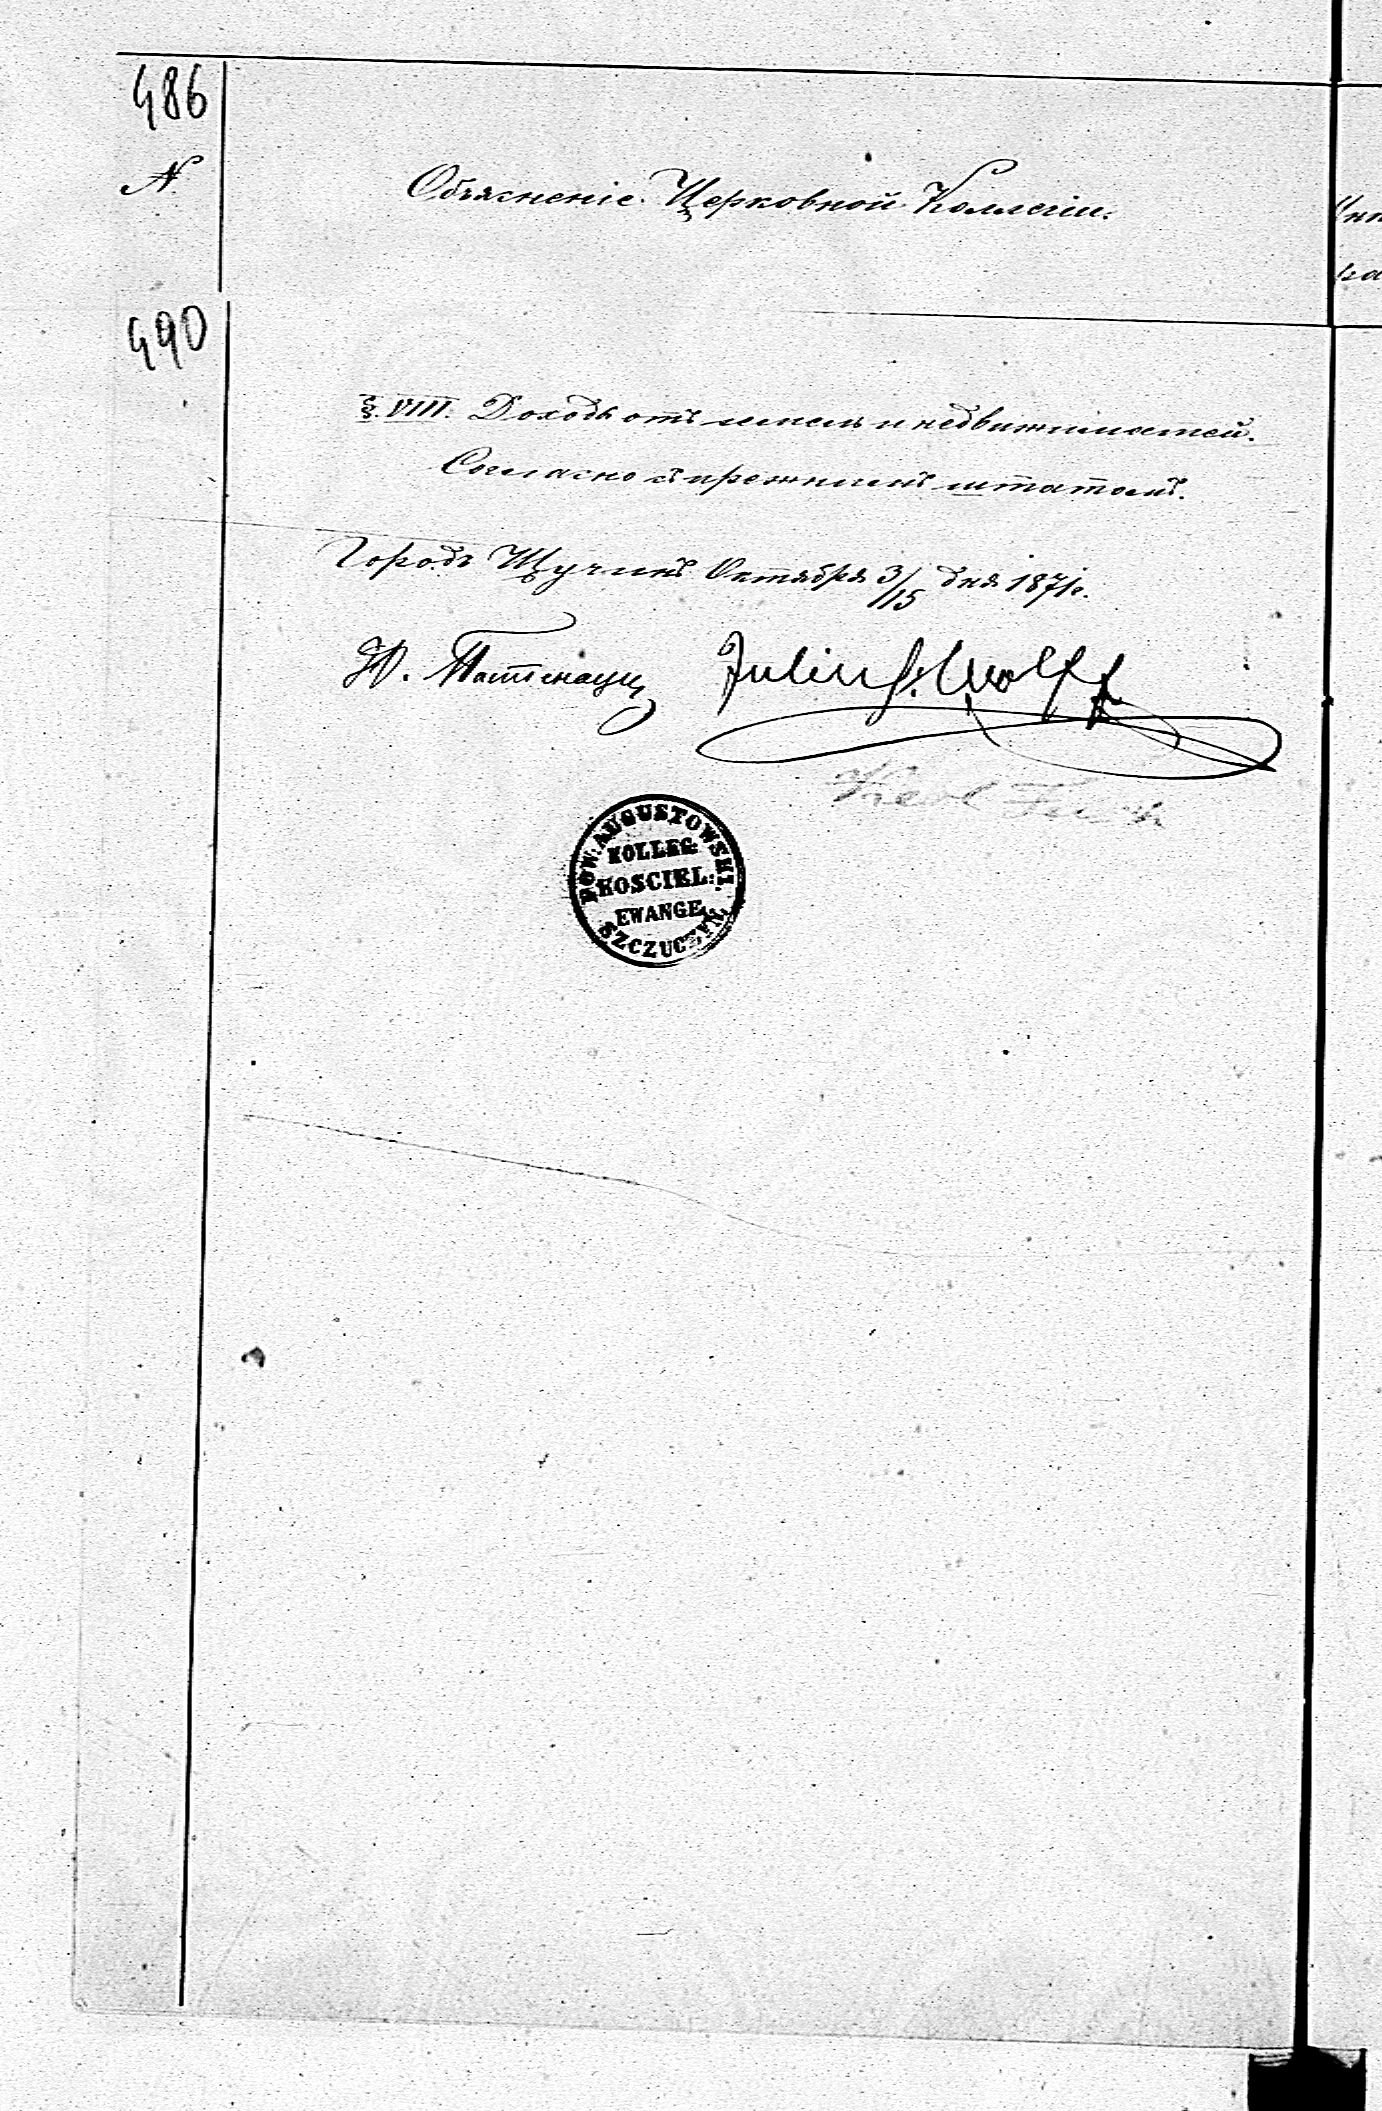 486
N
Объясненіе Церковной Коллегіи.
490
§. VIII. Доходъ отъ земель и недвижимостей.
Согласно съ прежнимъ штатомъ.
Городъ Щучинъ Октября 3/15 дня 1871 г.
Julius Wolff
POW: AUGUSTOWSKI.
KOLLEG:
KOSCIEL:
EWANGE
SZCZUCZYN.